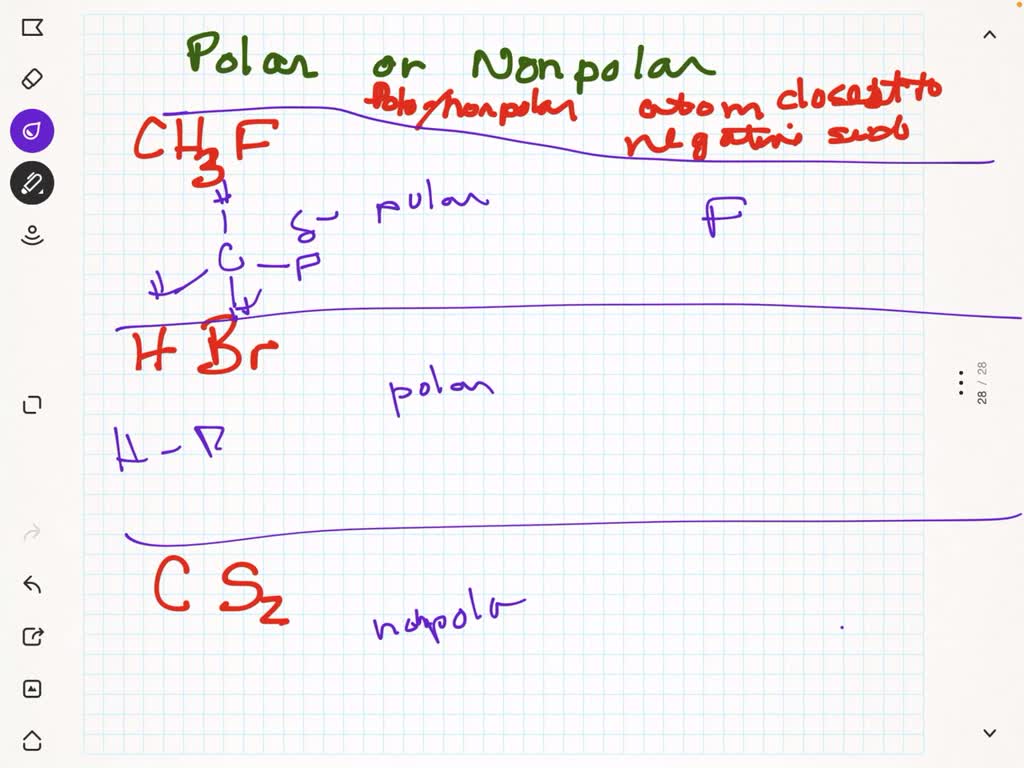 Polar or Nonpolar
Polar/nonpolar atom closest to
negative side
CH3F
H
δ- polar F
H C - F
H
H Br
polar
H -
CS2
nonpolar
28 / 28